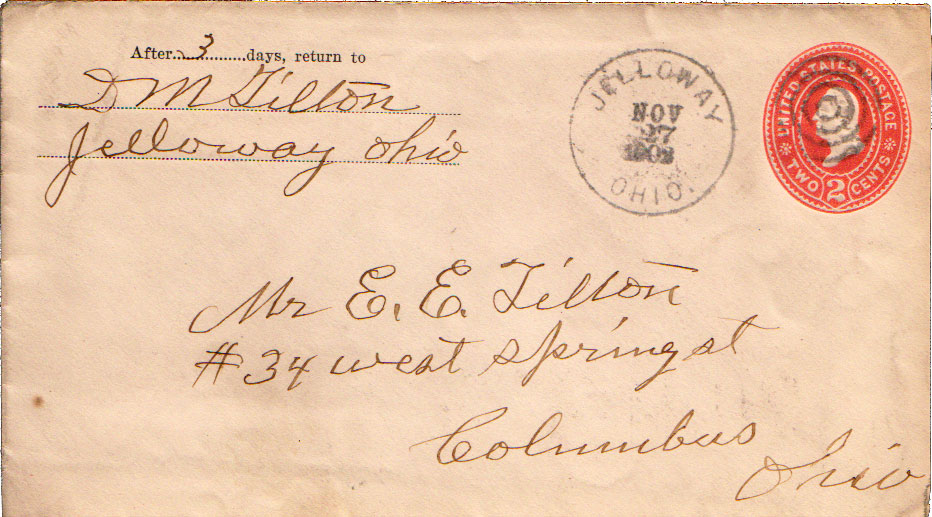 After 3 days, return to
D M Tilton
Jelloway Ohio
JELLOWAY
NOV
27
OHIO.
UNITED STATES POSTAGE
TWO 2 CENTS
Mr E. E. Tilton
#34 west spring st
Columbus
Ohio